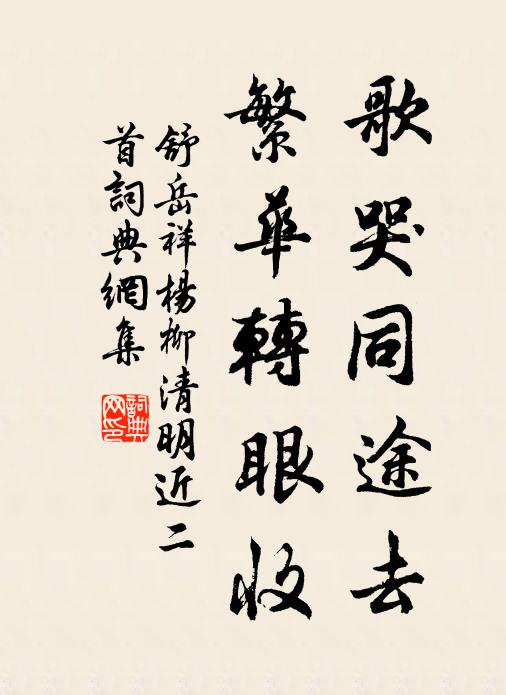 歌哭同途去
繁華轉眼收
舒岳祥楊柳清明近二
首詞典網集
詞典网印